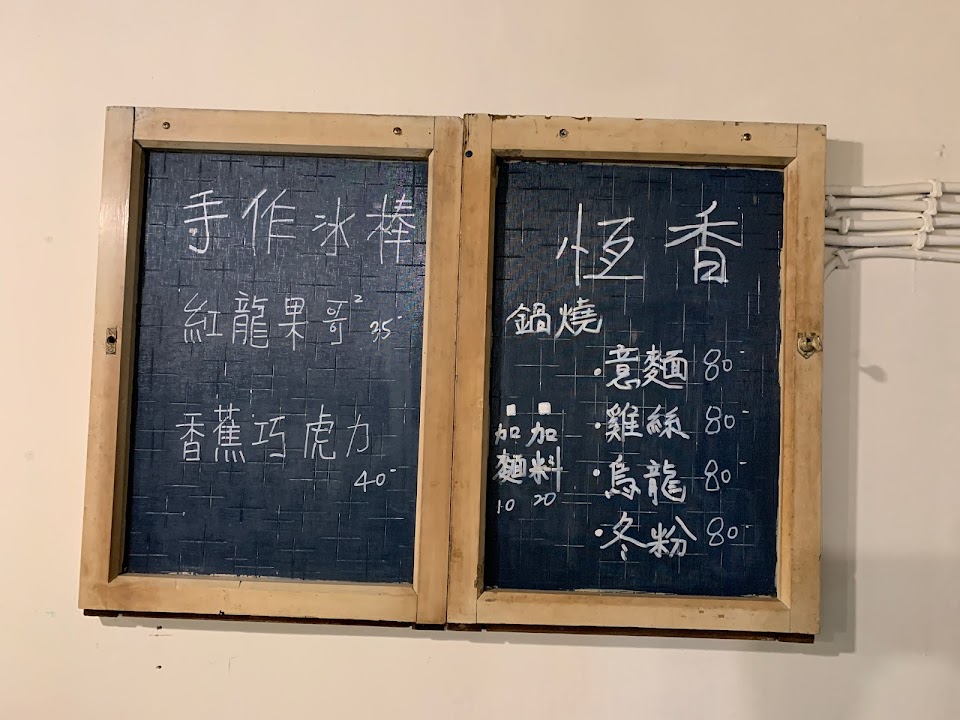 手作冰棒
紅龍果哥² 35-
香蕉巧虎力
40-
恆香
鍋燒
·意麵 80-
·雞絲 80-
·烏龍 80-
·冬粉 80-
加麵 10
加料 20